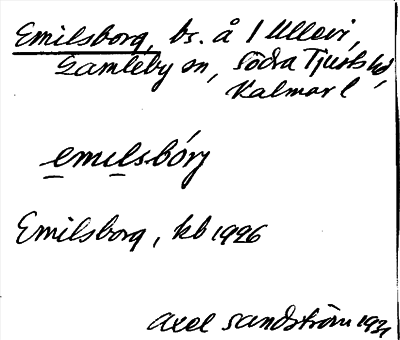 Emilsborg, bs. å 1 Ullevi,
Gamleby sn, Södra Tjusts hd,
Kalmar l
emilsbórj
Emilsborg, kb 1926
Axel Sandström 193